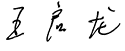 王启龙